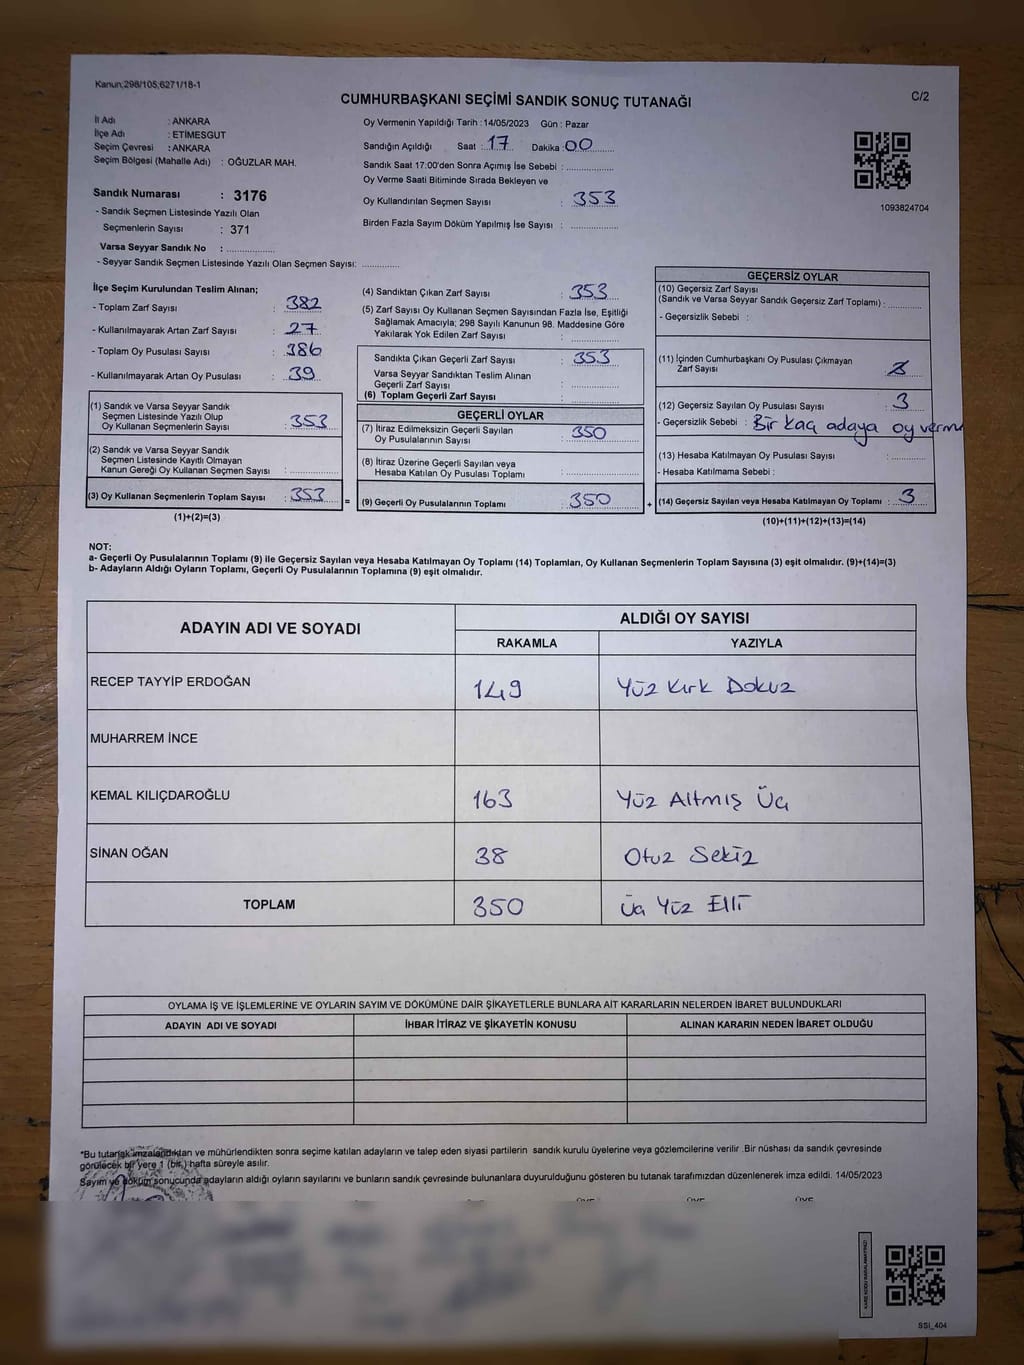 Kanun;298/105;6271/18-1
CUMHURBAŞKANI SEÇİMİ SANDIK SONUÇ TUTANAĞI
C/2
İl Adı : ANKARA
İlçe Adı : ETİMESGUT
Seçim Çevresi : ANKARA
Seçim Bölgesi (Mahalle Adı) : OĞUZLAR MAH.
Sandık Numarası : 3176
- Sandık Seçmen Listesinde Yazılı Olan
Seçmenlerin Sayısı : 371
Varsa Seyyar Sandık No : ..............
- Seyyar Sandık Seçmen Listesinde Yazılı Olan Seçmen Sayısı: ............
Oy Vermenin Yapıldığı Tarih : 14/05/2023 Gün : Pazar
Sandığın Açıldığı Saat : 17 Dakika : 00
Sandık Saat 17:00'den Sonra Açımış İse Sebebi : ..............
Oy Verme Saati Bitiminde Sırada Bekleyen ve
Oy Kullandırılan Seçmen Sayısı : 353
Birden Fazla Sayım Döküm Yapılmış İse Sayısı : ..............
1093824704
İlçe Seçim Kurulundan Teslim Alınan;
- Toplam Zarf Sayısı : 382
- Kullanılmayarak Artan Zarf Sayısı : 27
- Toplam Oy Pusulası Sayısı : 386
- Kullanılmayarak Artan Oy Pusulası : 39
(1) Sandık ve Varsa Seyyar Sandık
Seçmen Listesinde Yazılı Olup
Oy Kullanan Seçmenlerin Sayısı : 353
(2) Sandık ve Varsa Seyyar Sandık
Seçmen Listesinde Kayıtlı Olmayan
Kanun Gereği Oy Kullanan Seçmen Sayısı : ..............
(3) Oy Kullanan Seçmenlerin Toplam Sayısı : 353 =
(1)+(2)=(3)
(4) Sandıktan Çıkan Zarf Sayısı : 353
(5) Zarf Sayısı Oy Kullanan Seçmen Sayısından Fazla İse, Eşitliği
Sağlamak Amacıyla; 298 Sayılı Kanunun 98. Maddesine Göre
Yakılarak Yok Edilen Zarf Sayısı : ..............
Sandıkta Çıkan Geçerli Zarf Sayısı : 353
Varsa Seyyar Sandıktan Teslim Alınan
Geçerli Zarf Sayısı : ..............
(6) Toplam Geçerli Zarf Sayısı : ..............
GEÇERLİ OYLAR
(7) İtiraz Edilmeksizin Geçerli Sayılan
Oy Pusulalarının Sayısı : 350
(8) İtiraz Üzerine Geçerli Sayılan veya
Hesaba Katılan Oy Pusulası Toplamı : ..............
(9) Geçerli Oy Pusulalarının Toplamı : 350 +
GEÇERSİZ OYLAR
(10) Geçersiz Zarf Sayısı
(Sandık ve Varsa Seyyar Sandık Geçersiz Zarf Toplamı) : ..........
- Geçersizlik Sebebi :
(11) İçinden Cumhurbaşkanı Oy Pusulası Çıkmayan
Zarf Sayısı :
(12) Geçersiz Sayılan Oy Pusulası Sayısı : 3
- Geçersizlik Sebebi : Bir kaç adaya oy verme
(13) Hesaba Katılmayan Oy Pusulası Sayısı : ..........
- Hesaba Katılmama Sebebi :
(14) Geçersiz Sayılan veya Hesaba Katılmayan Oy Toplamı : 3
(10)+(11)+(12)+(13)=(14)
NOT:
a- Geçerli Oy Pusulalarının Toplamı (9) ile Geçersiz Sayılan veya Hesaba Katılmayan Oy Toplamı (14) Toplamları, Oy Kullanan Seçmenlerin Toplam Sayısına (3) eşit olmalıdır. (9)+(14)=(3)
b- Adayların Aldığı Oyların Toplamı, Geçerli Oy Pusulalarının Toplamına (9) eşit olmalıdır.
ADAYIN ADI VE SOYADI
ALDIĞI OY SAYISI
RAKAMLA YAZIYLA
RECEP TAYYİP ERDOĞAN 149 Yüz Kırk Dokuz
MUHARREM İNCE
KEMAL KILIÇDAROĞLU 163 Yüz Altmış Üç
SİNAN OĞAN 38 Otuz Sekiz
TOPLAM 350 Üç Yüz Elli
OYLAMA İŞ VE İŞLEMLERİNE VE OYLARIN SAYIM VE DÖKÜMÜNE DAİR ŞİKAYETLERLE BUNLARA AİT KARARLARIN NELERDEN İBARET BULUNDUKLARI
ADAYIN ADI VE SOYADI İHBAR İTİRAZ VE ŞİKAYETİN KONUSU ALINAN KARARIN NEDEN İBARET OLDUĞU
*Bu tutanak imzalandıktan ve mühürlendikten sonra seçime katılan adayların ve talep eden siyasi partilerin sandık kurulu üyelerine veya gözlemcilerine verilir .Bir nüshası da sandık çevresinde
görülecek bir yere 1 (bir.) hafta süreyle asılır.
Sayım ve döküm sonucunda adayların aldığı oyların sayılarını ve bunların sandık çevresinde bulunanlara duyurulduğunu gösteren bu tutanak tarafımızdan düzenlenerek imza edildi. 14/05/2023
ÜYE ÜYE ÜYE
KARE KODU KARALAMAYINIZ!
SSI_404